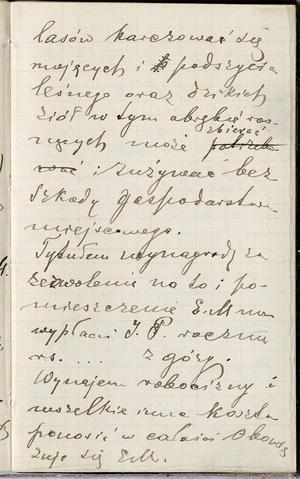 lasów karczować się
mających i podszycia
leśnego oraz dzikich
ziół w tym obrębie ros-
nących może zbierać
i zużywać bez
szkody gospodarstwa
miejscowego.
Tytułem wynagrodz. za
zezwolenie na to i po-
mieszczenie E.M. ma
wypłacić J. P. rocznie
rs. .... z góry.
Wynajem robocizny i
wszelkie inne koszta
ponosić w całości obowią-
zuje się E.M.